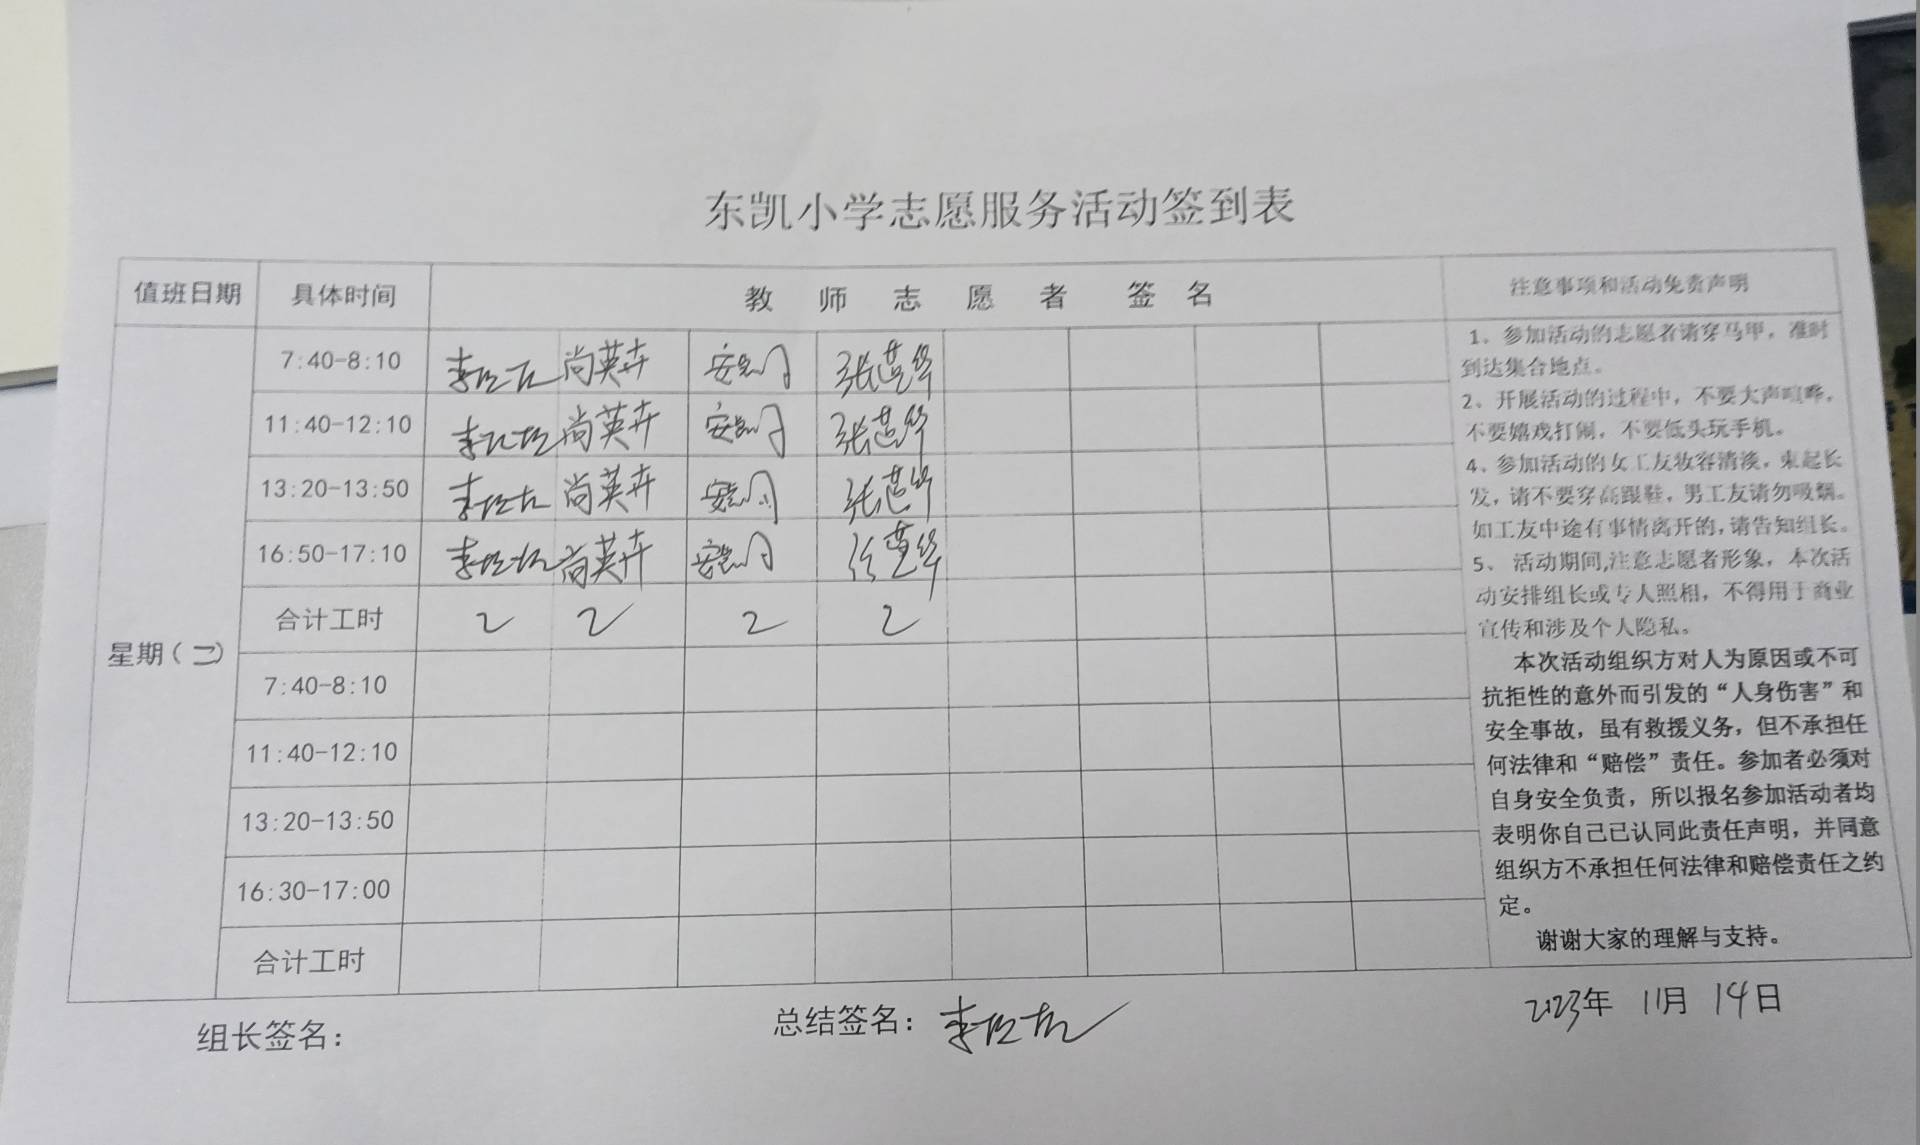 东凯小学志愿服务活动签到表
值班日期 具体时间 教师志愿者 签名 注意事项和活动免责声明
星期(二)
7:40-8:10 尚英卉
11:40-12:10 尚英卉
13:20-13:50 尚英卉
16:50-17:10 尚英卉
合计工时 2 2 2 2
7:40-8:10
11:40-12:10
13:20-13:50
16:30-17:00
合计工时
1、参加活动的志愿者请穿马甲，准时
到达集合地点。
2、开展活动的过程中，不要大声喧哗，
不要嬉戏打闹，不要低头玩手机。
4、参加活动的女工友妆容清淡，束起长
发，请不要穿高跟鞋，男工友请勿吸烟。
如工友中途有事情离开的，请告知组长。
5、 活动期间,注意志愿者形象，本次活
动安排组长或专人照相，不得用于商业
宣传和涉及个人隐私。
本次活动组织方对人为原因或不可
抗拒性的意外而引发的“人身伤害”和
安全事故，虽有救援义务，但不承担任
何法律和“赔偿”责任。参加者必须对
自身安全负责，所以报名参加活动者均
表明你自己已认同此责任声明，并同意
组织方不承担任何法律和赔偿责任之约
定。
谢谢大家的理解与支持。
组长签名： 总结签名： 2023年 11月 14日